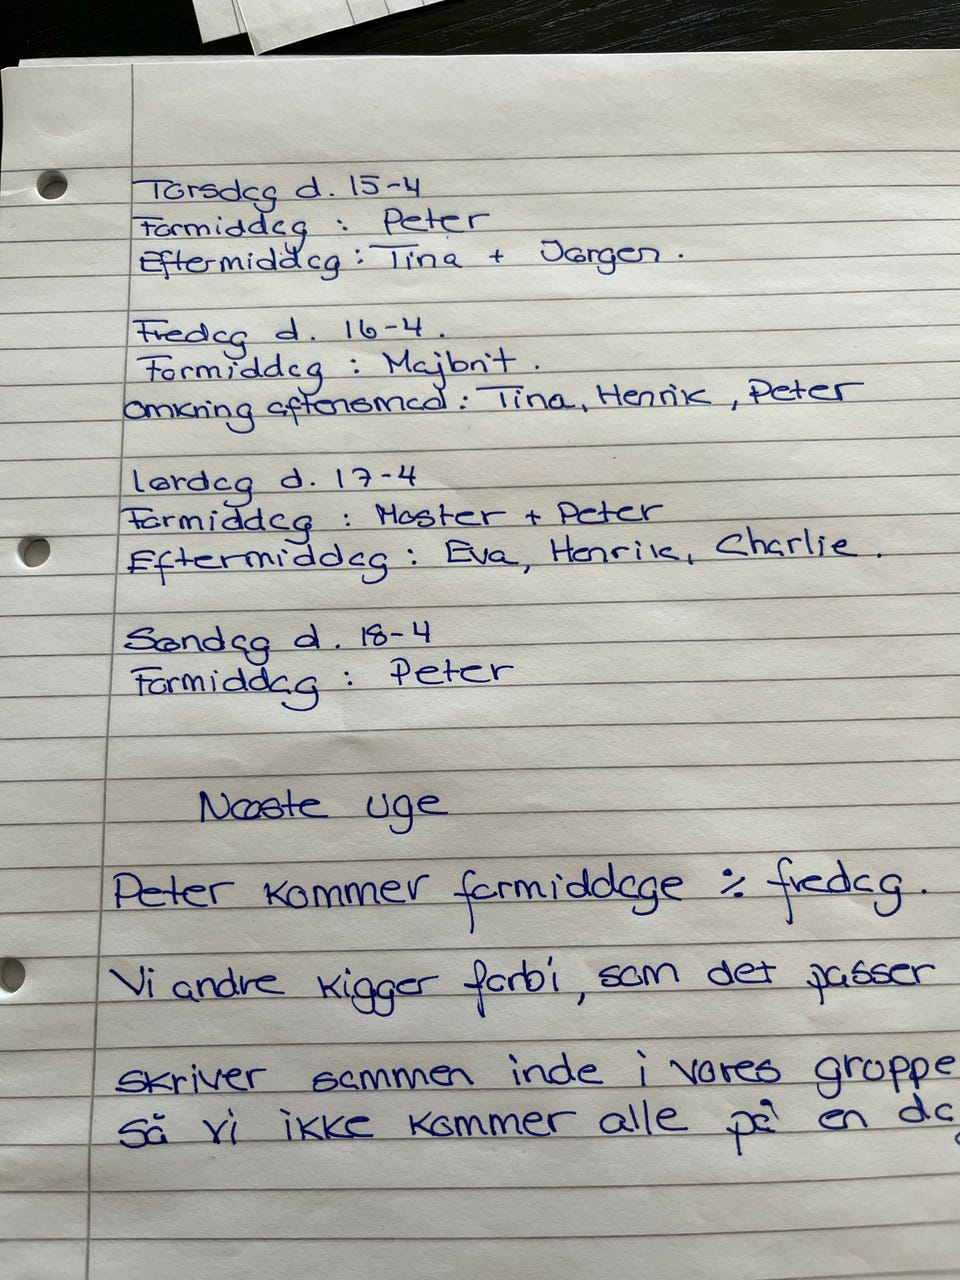 Torsdag d. 15-4
Formiddag : Peter
Eftermiddag : Tina + Jørgen .
Fredag d. 16-4 .
Formiddag : Majbrit .
omkring aftensmad : Tina, Henrik , Peter
Lørdag d. 17-4
Formiddag : Moster + Peter
Eftermiddag : Eva, Henrik, Charlie .
Søndag d. 18-4
Formiddag : Peter
Næste uge
Peter kommer formiddage % fredag .
Vi andre kigger forbi , som det passer
skriver sammen inde i vores gruppe
så vi ikke kommer alle på en dag